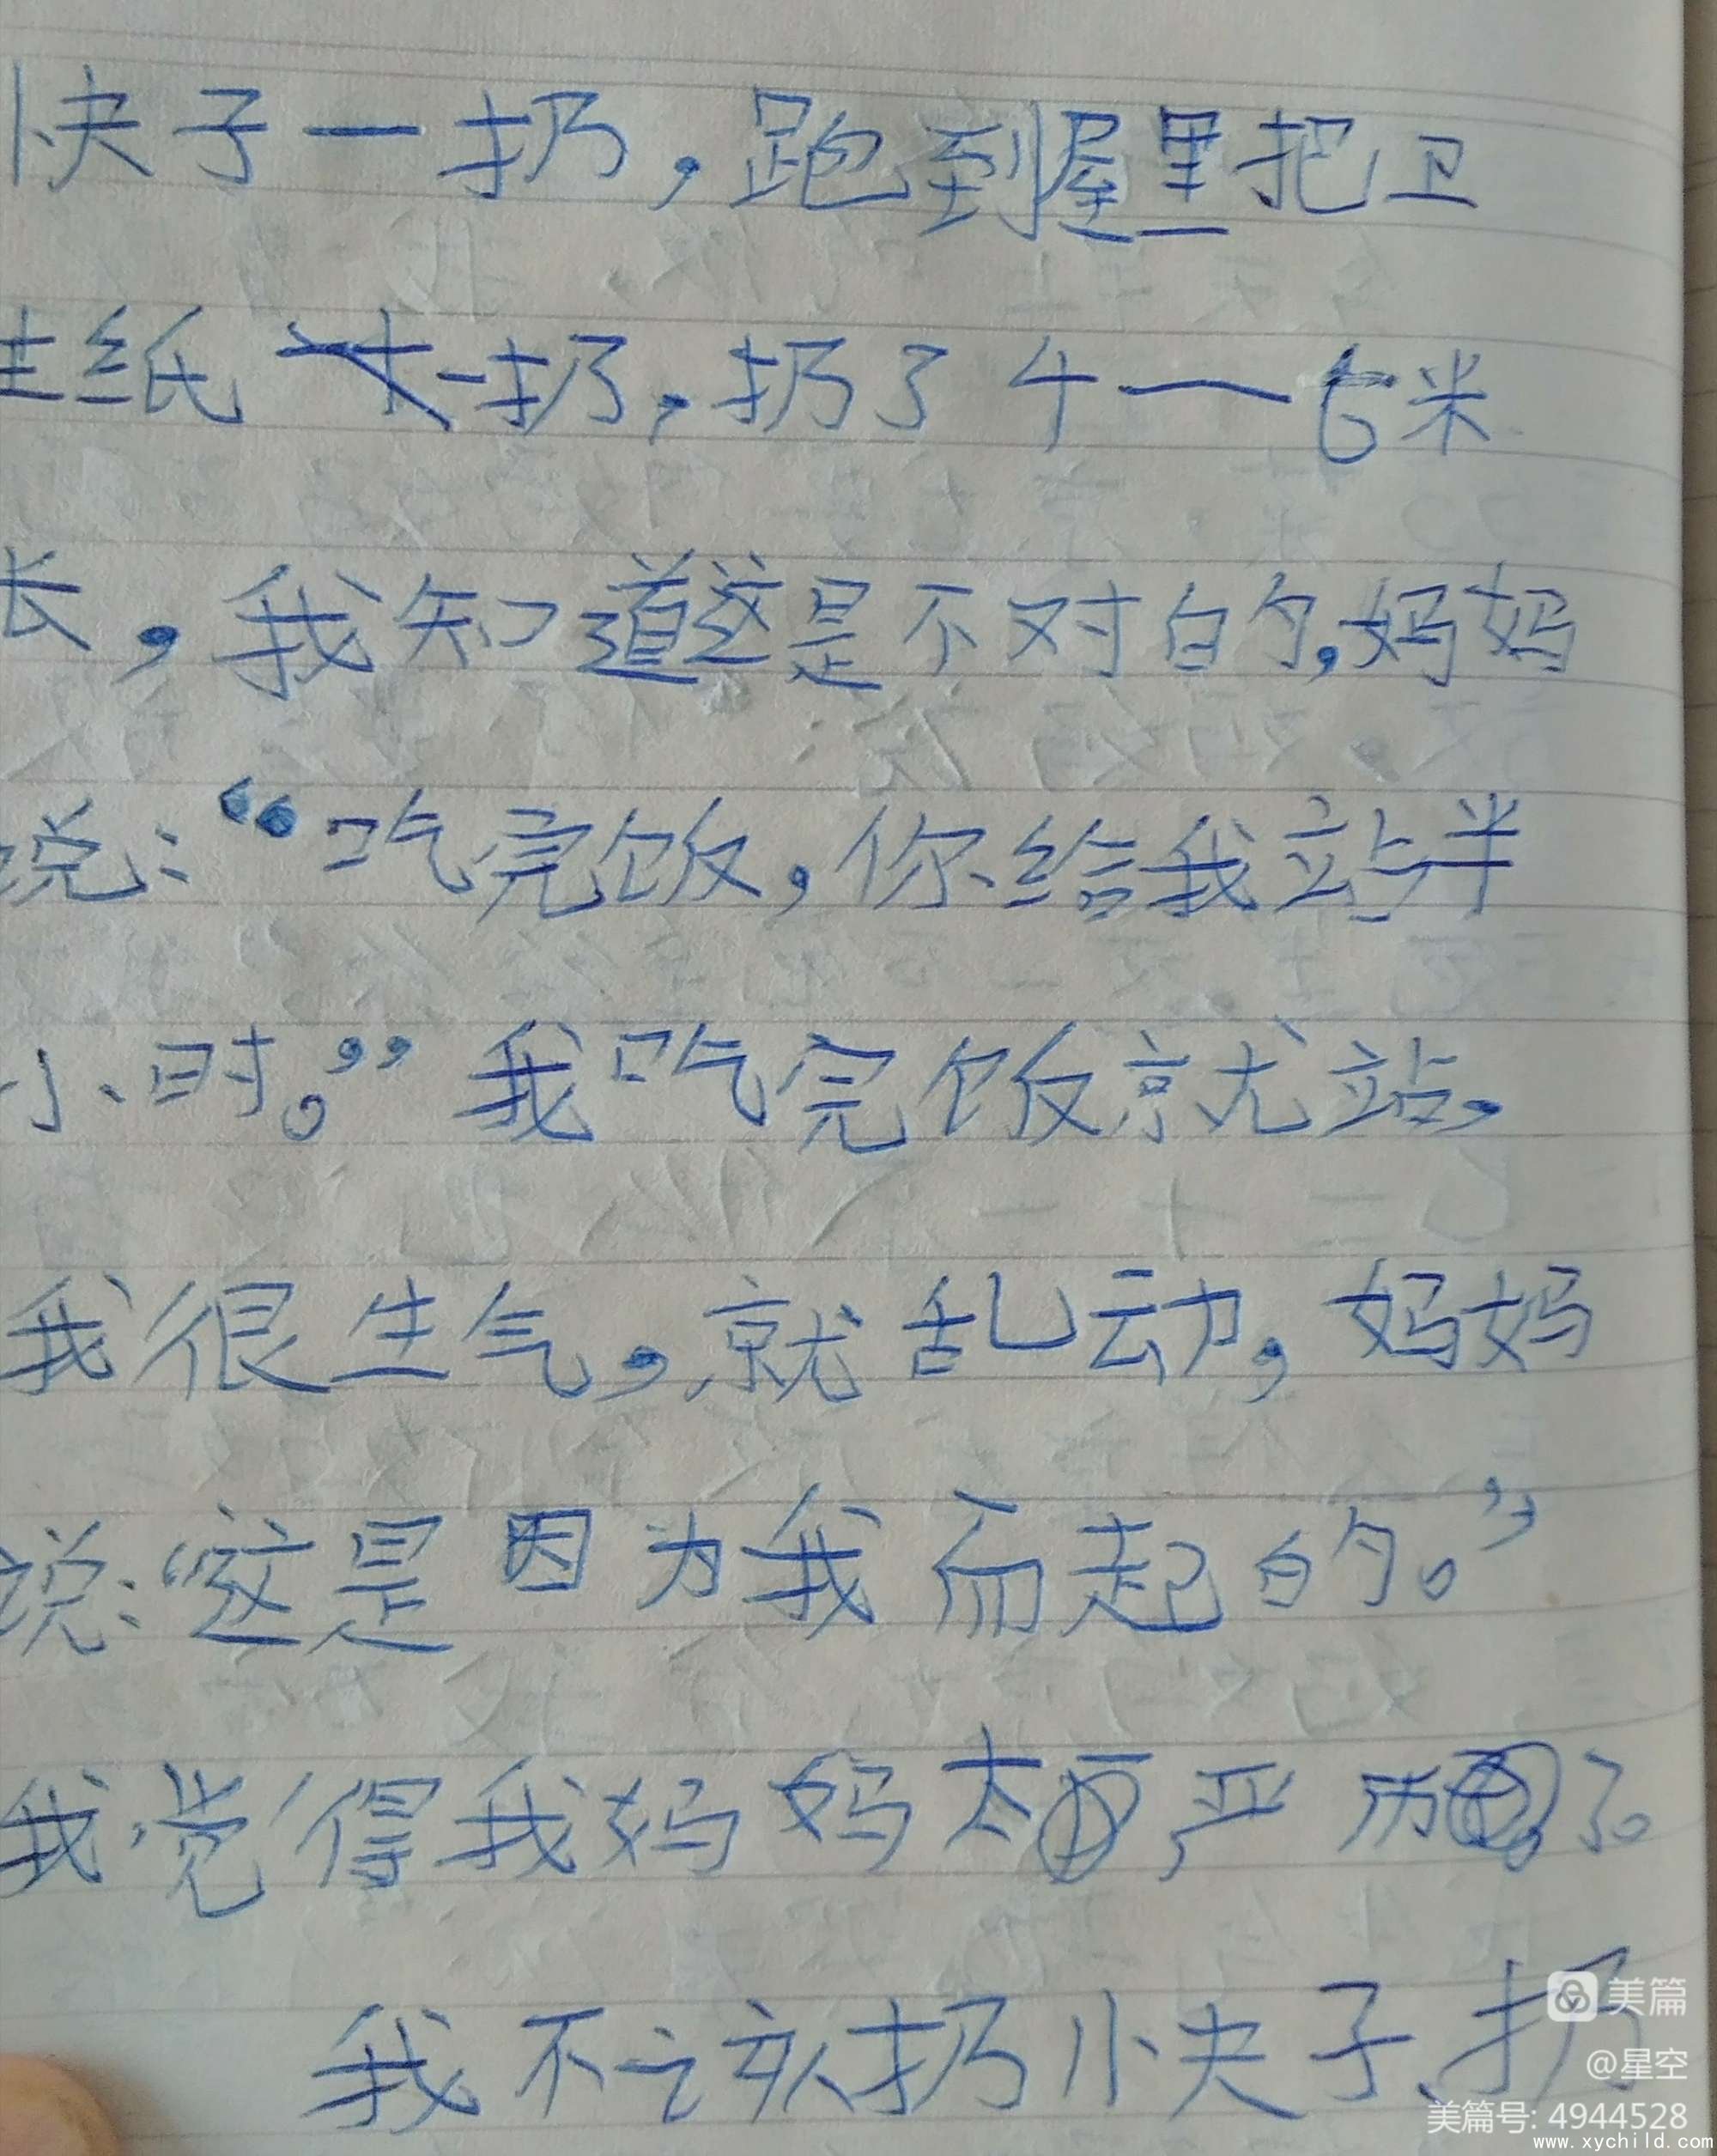 快子一扔，跑到屋里把卫
生纸一扔，扔了4一6米
长，我知道这是不对的，妈妈
说：“吃完饭，你给我站半
小时。”我吃完饭就站，
我很生气，就乱动，妈妈
说：“这是因为我而起的。”
我觉得我妈妈太严厉了。
我不该扔快子、扔
美篇
@星空
美篇号: 4944528
www.xychild.com